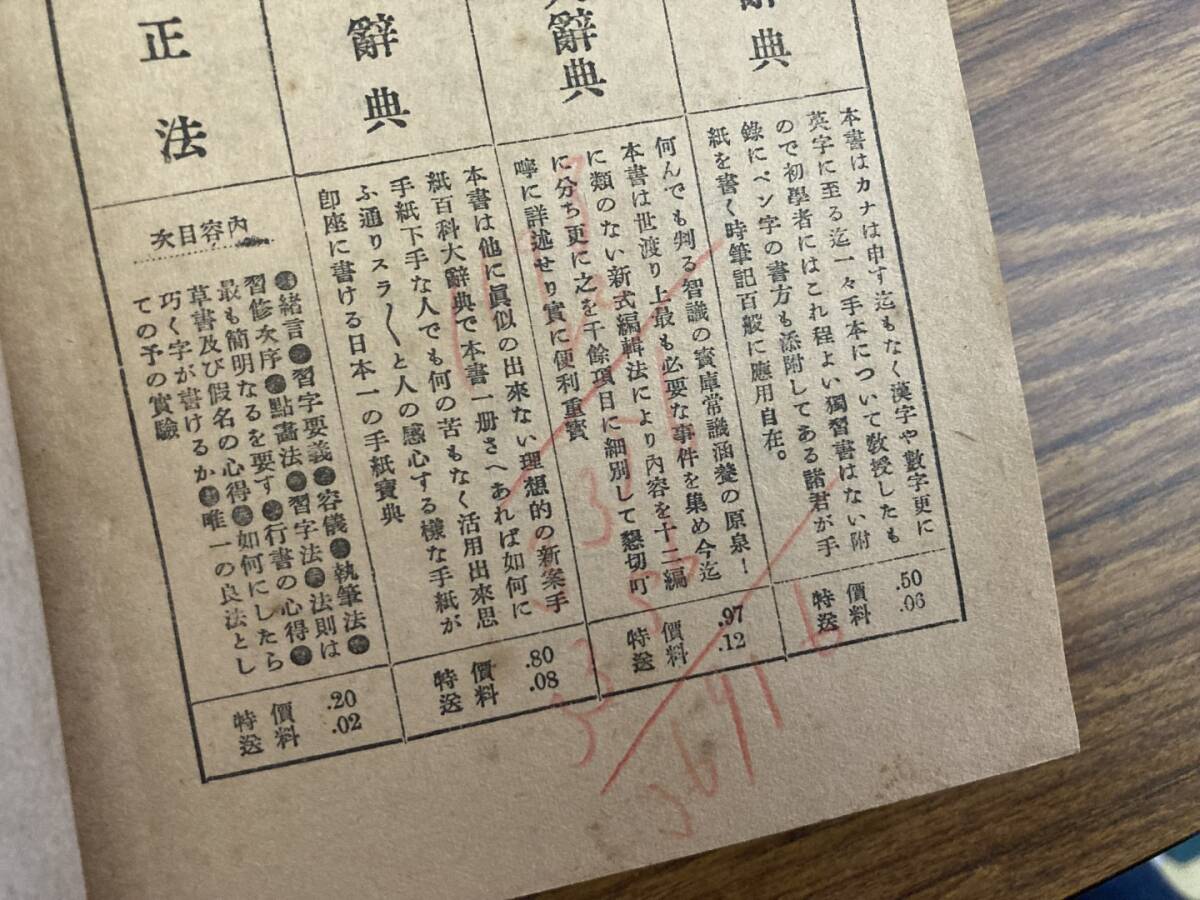 辭典
本書はカナは申す迄もなく漢字や數字更に
英字に至る迄一々手本について敎授したも
ので初學者にはこれ程よい獨習書はない附
錄にペン字の書方も添附してある諸君が手
紙を書く時筆記百般に應用自在。
特價 .50
送料 .06
辭典
何んでも判る智識の寶庫常識涵養の原泉!
本書は世渡り上最も必要な事件を集め今迄
に類のない新式編輯法により內容を十二編
に分ち更に之を千餘項目に細別して懇切叮
嚀に詳述せり實に便利重寶
特價 .97
送料 .12
辭典
本書は他に眞似の出來ない理想的の新案手
紙百科大辭典で本書一册さへあれば如何に
手紙下手な人でも何の苦もなく活用出來思
ふ通りスラ〳〵と人の感心する樣な手紙が
卽座に書ける日本一の手紙寶典
特價 .80
送料 .08
正法
內容目次
●緖言●習字要義●容儀●執筆法●
習修次序●點畵法●習字法●法則は
最も簡明なるを要す●行書の心得●
草書及び假名の心得●如何にしたら
巧く字が書けるか●唯一の良法とし
ての予の實驗
特價 .20
送料 .02